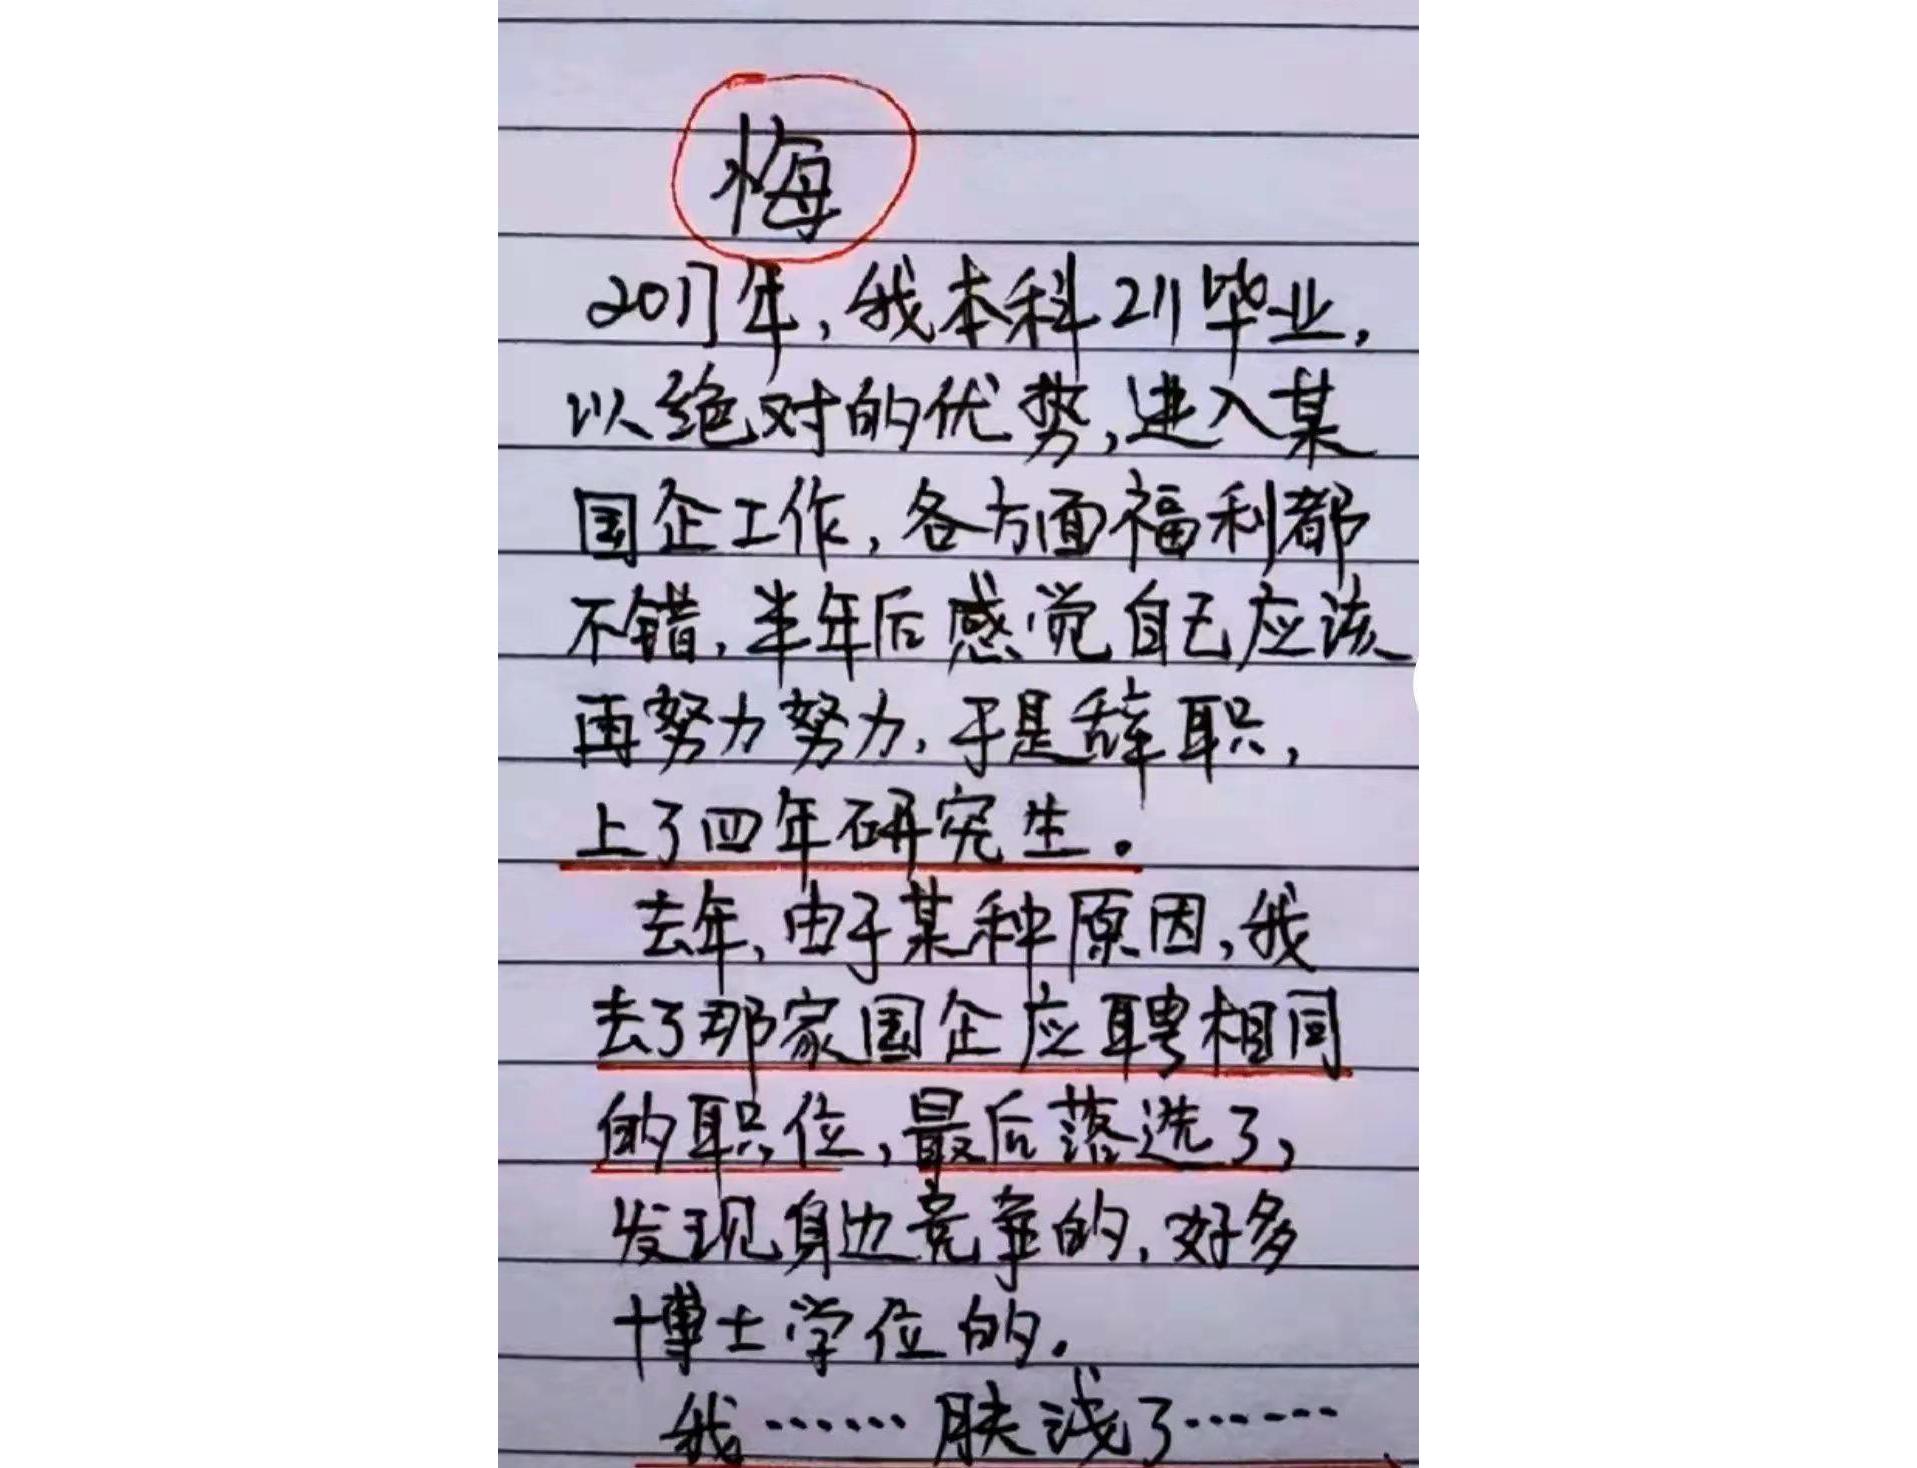 悔
2017年，我本科211毕业，
以绝对的优势，进入某
国企工作，各方面福利都
不错，半年后感觉自己应该
再努力努力，于是辞职，
上了四年研究生。
去年，由于某种原因，我
去了那家国企应聘相同
的职位，最后落选了，
发现身边竞争的，好多
博士学位的。
我……肤浅了……